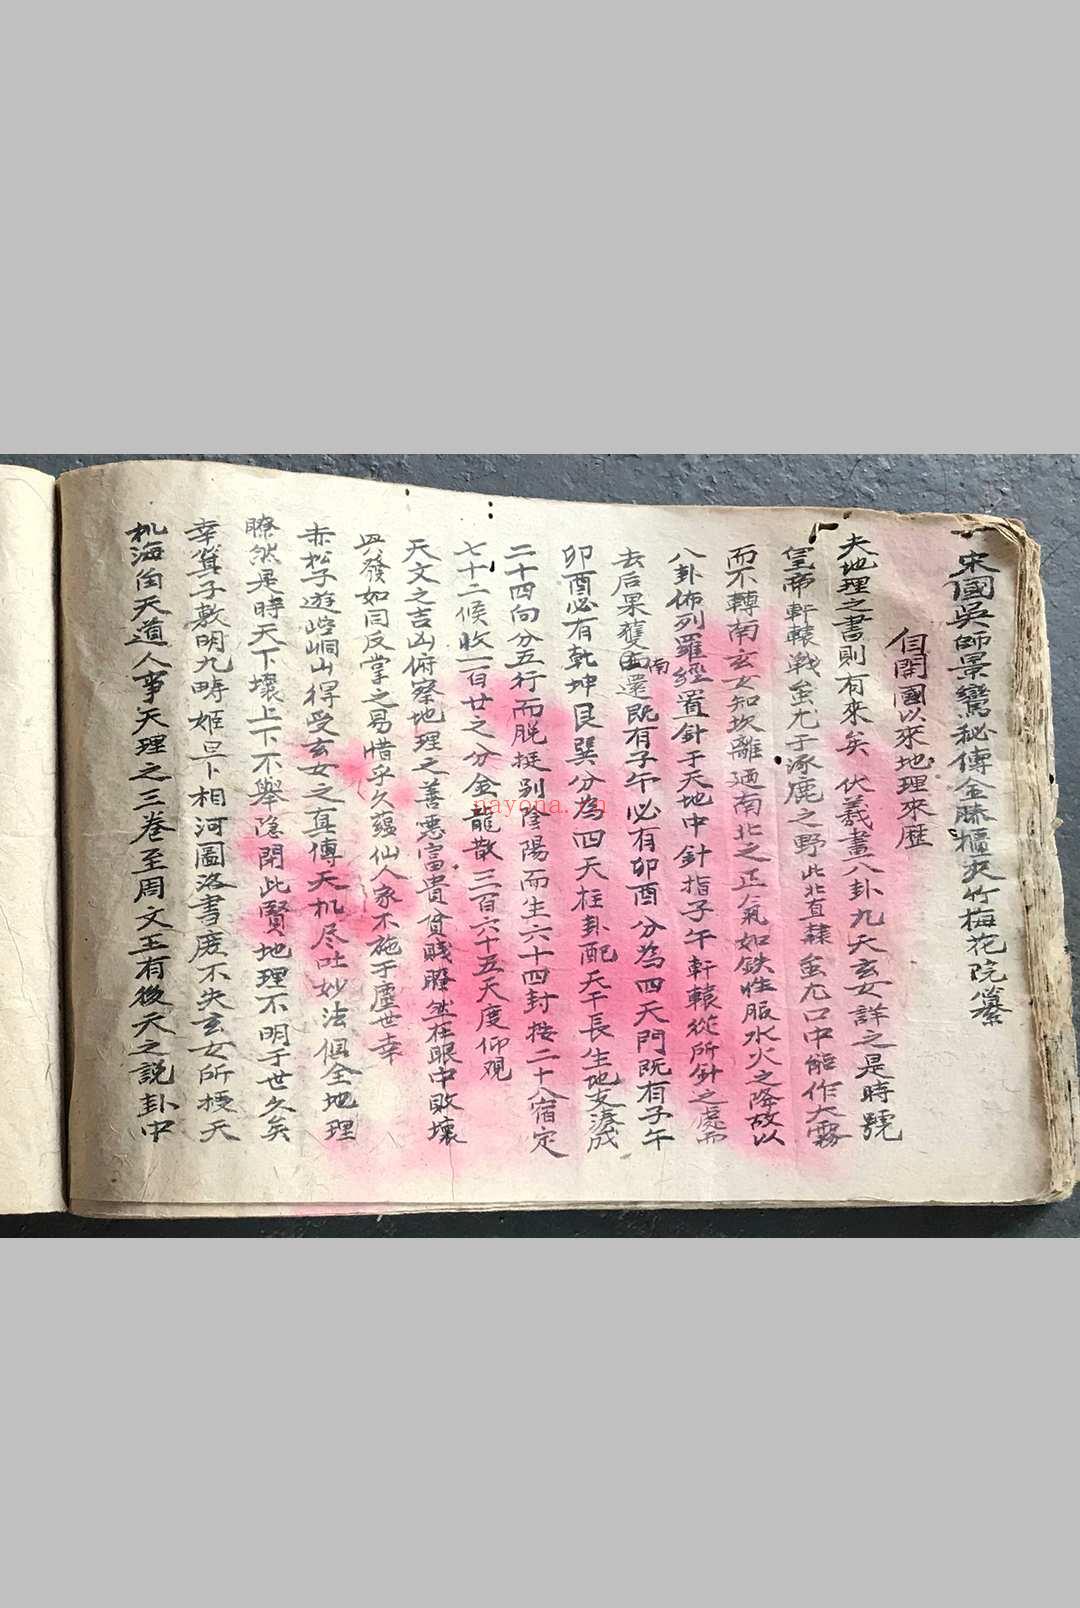 宋國吳師景鸞秘傳金縢櫃夾竹梅花院纂
自開國以來地理來歷
夫地理之書則有來矣 伏羲畫八卦九天玄女詳之是時號
皇帝軒轅戰蚩尤于涿鹿之野此北直隸蚩尤口中能作大霧
而不轉南玄女知坎離廼南北之正氣如鉄性服水火之降故以
八卦佈列羅經置針于天地中針指子午軒轅從所針之處而
去后果獲南還既有子午必有卯酉分為四天門既有子午
卯酉必有乾坤艮巽分為四天柱卦配天干長生地支湊成
二十四向分五行而脱挺别陰陽而生六十四封按二十八宿定
七十二候收一百廿之分金龍散三百六十五天度仰观
天文之吉凶俯察地理之善悪富貴貧賤瞭然在眼中敗壞
與發如同反掌之易惜乎久蘊仙人家不施于塵世幸
赤松子遊崆峒山得受玄女之真傳天机尽吐妙法俱全地理
瞭然是時天下壞上下不舉隐閉此賢地理不明于世久矣
幸箕子敷明九疇姬旦卜相河圖洛書庶不失玄女所授天
机海角天道人亊天理之三卷至周文王有後天之説卦中
nayona.cn